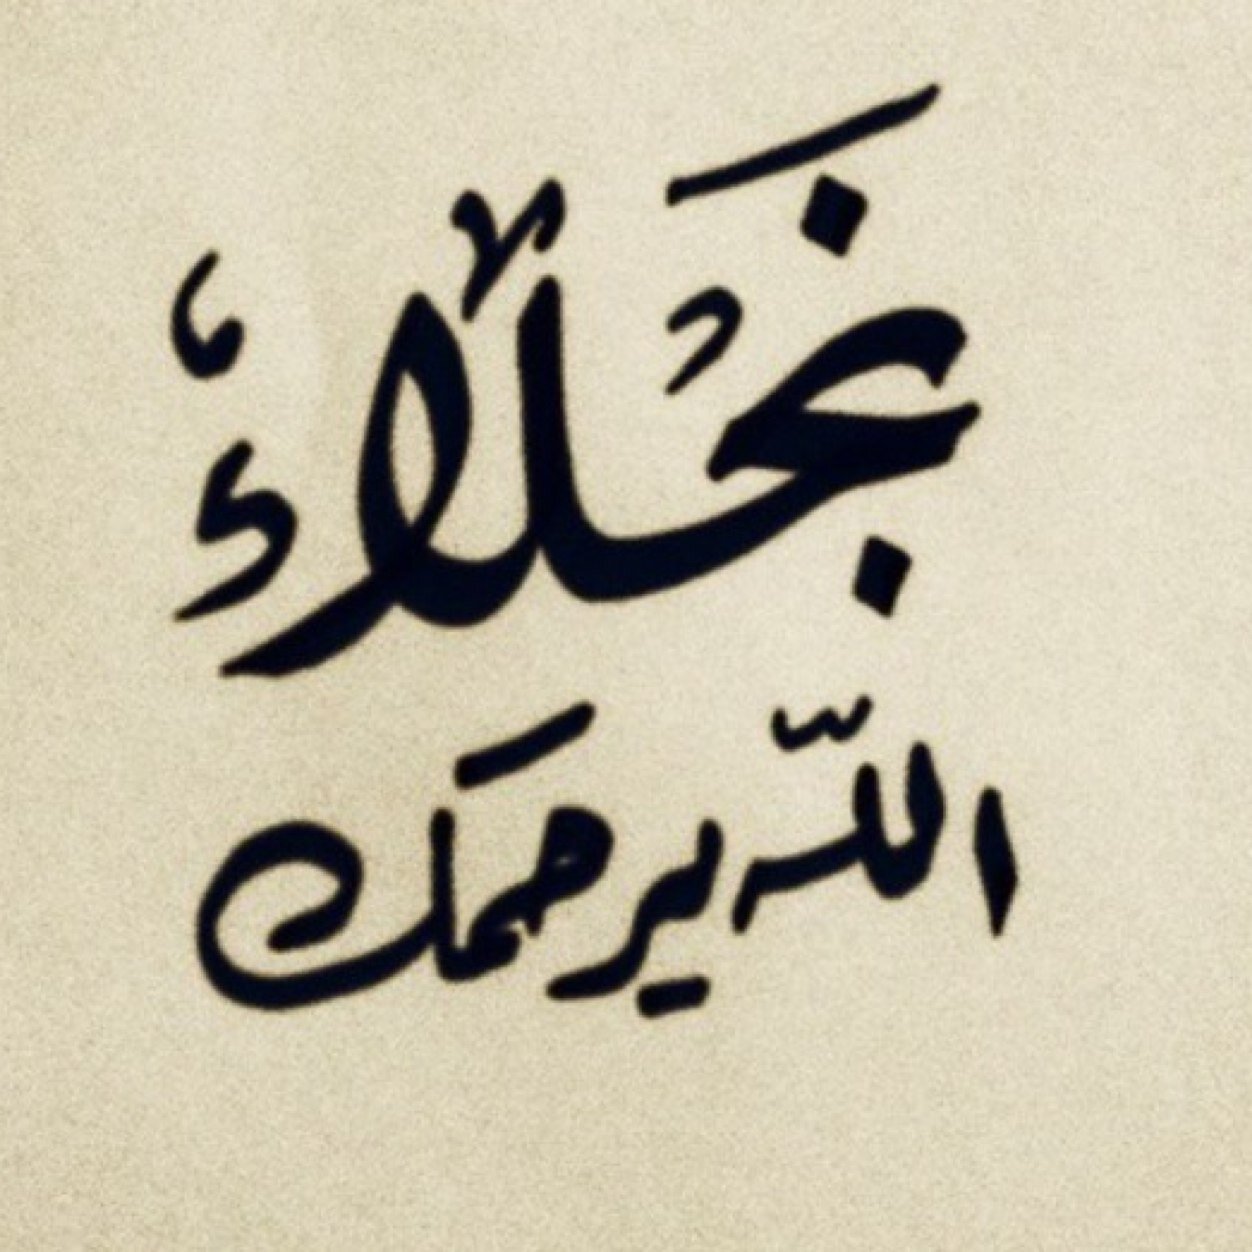 نَجْلاءُ
اللّه يرحمَك